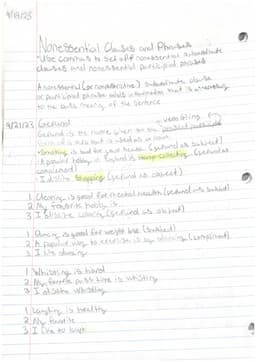 9/19/23
Nonessential Clauses and Phrases
Use commas to set off nonessential subordinate
clauses and nonessential participial phrases
A nonessential (or nonrestrictive) subordinate clause
or participial phrase adds information that is
to the meaning of the sentence
9/21/23 Gerund verb + ing
Gerund is the name given to the present participle
form of a verb that is used as a noun
Smoking is bad for your health (gerund as subject)
A popular hobby in England is collecting (gerund as
complement)
I dislike shopping (gerund as object)
1 Cleaning is good for mental health (gerund as subject)
2 My favorite hobby is
3 I dislike (gerund as object)
1 Dancing is good for weight loss (subject)
2 A popular way to exercise is by dancing (complement)
3 I like dancing
1 Whistling is hard
2 My favorite past time is whistling
3 I dislike whistling
1 Laughing is healthy
2 My favorite
3 I like to laugh